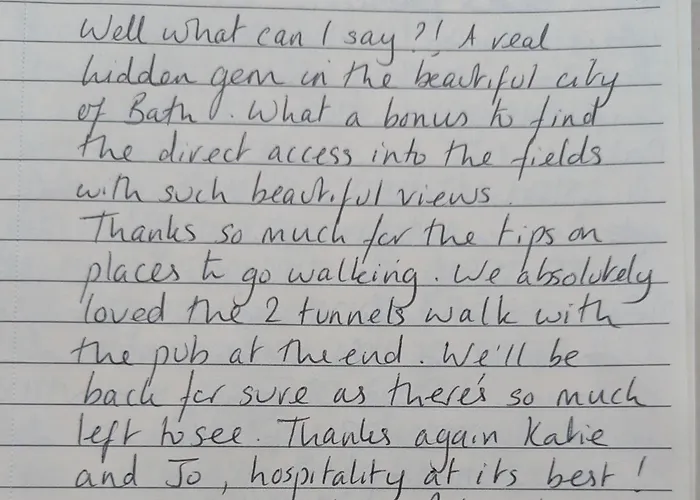 Well what can I say ?! A real
hidden gem in the beautiful city
of Bath. What a bonus to find
the direct access into the fields
with such beautiful views.
Thanks so much for the tips on
places to go walking. We absolutely
loved the 2 tunnels walk with
the pub at the end. We'll be
back for sure as there's so much
left to see. Thanks again Katie
and Jo, hospitality at its best!